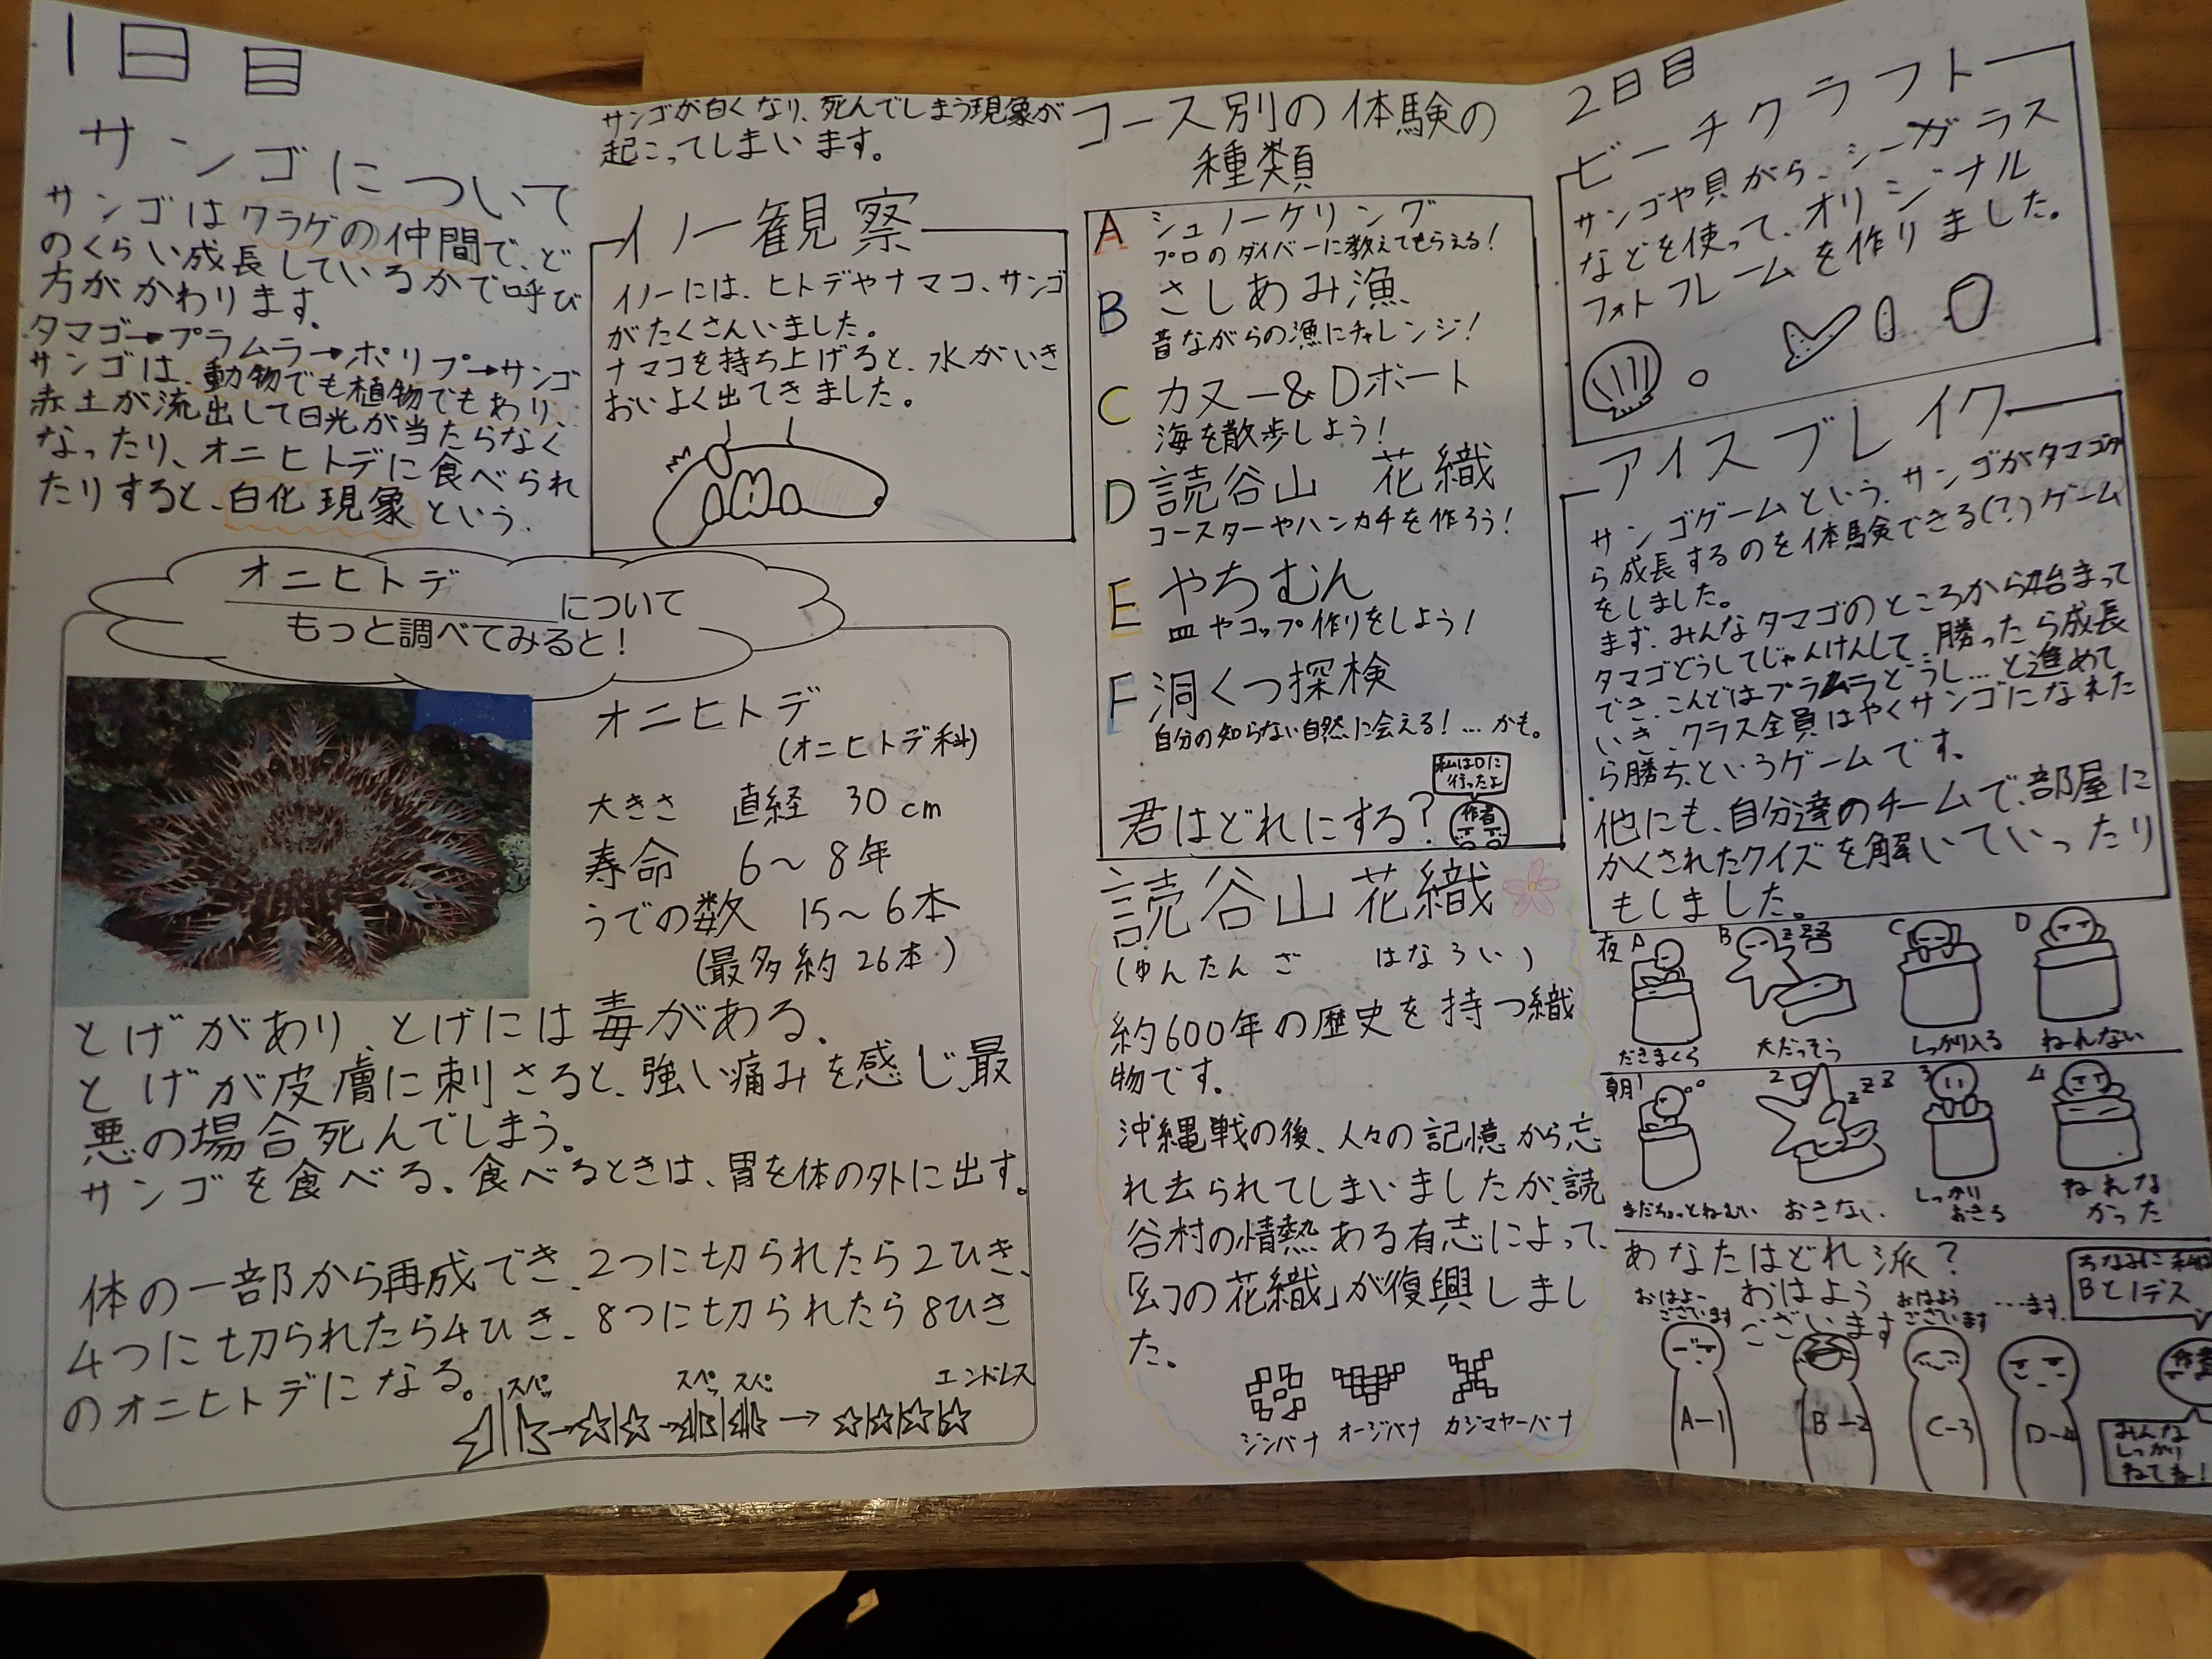 1日目
サンゴについて
サンゴはクラゲの仲間で、ど
のくらい成長しているかで呼び
方がかわります。
タマゴ→プラムラ→ポリプ→サンゴ
サンゴは、動物でも植物でもわり、
赤土が流出して日光が当たらなく
なったり、オニヒトデに食べられ
たりすると、白化現象という、
サンゴが白くなり、死んでしまう現象が
起こってしまいます。
イノー観察
イノーには、ヒトデやナマコ、サンゴ
がたくさんいました。
ナマコを持ち上げると、水がいき
おいよく出てきました。
オニヒトデについて
もっと調べてみると！
オニヒトデ
(オニヒトデ科)
大きさ 直経 30cm
寿命 6〜8年
うでの数 15〜6本
(最多約26本)
とげがあり、とげには毒がある。
とげが皮膚に刺さると、強い痛みを感じ、最
悪の場合死んでしまう。
サンゴを食べる。食べるときは、胃を体の外に出す。
体の一部から再成でき、2つに切られたら2ひき、
4つに切られたら4ひき、8つに切られたら8ひき
のオニヒトデになる。
スパッ
スパッ スパッ
エンドレス
コース別の体験の
種類
A シュノーケリング
プロのダイバーに教えてもらえる！
B さしあみ漁
昔ながらの漁にチャレンジ！
C カヌー&Dボート
海を散歩しよう！
D 読谷山 花織
コースターやハンカチを作ろう！
E やちむん
皿やコップ作りをしよう！
F 洞くつ探検
自分の知らない自然に会える！…かも。
君はどれにする？
私はDに
行ったよ
作者
読谷山花織
(ゆんたんざ はなうい)
約600年の歴史を持つ織
物です。
沖縄戦の後、人々の記憶から忘
れ去られてしまいましたが、読
谷村の情熱ある有志によって、
「幻の花織」が復興しまし
た。
ジンバナ オージバナ カジマヤーバナ
2日目
ビーチクラフト
サンゴや貝がら、シーガラス
などを使って、オリジナル
フォトフレームを作りました。
アイスブレイク
サンゴゲームという、サンゴがタマゴか
ら成長するのを体験できる(？)ゲーム
をしました。
まず、みんなタマゴのところから始まって
タマゴどうしでじゃんけんして、勝ったら成長
でき、こんどはプラムラどうし…と進めて
いき、クラス全員はやくサンゴになれた
ら勝ち、というゲームです。
他にも、自分達のチームで、部屋に
かくされたクイズを解いていったり
もしました。
夜 A B C D
だきまくら 大だっそう しっかり入る ねんない
朝 1 2 3 4
まだちょっとねむい おきない しっかり
おきる ねれな
かった
あなたはどれ派？
おはよー
ございます
おはよう
ございます
おはよう
ございます
…ます
A-1 B-2 C-3 D-4
ちなみに私は
Bと1デス
作者
みんな
しっかり
ねてね！